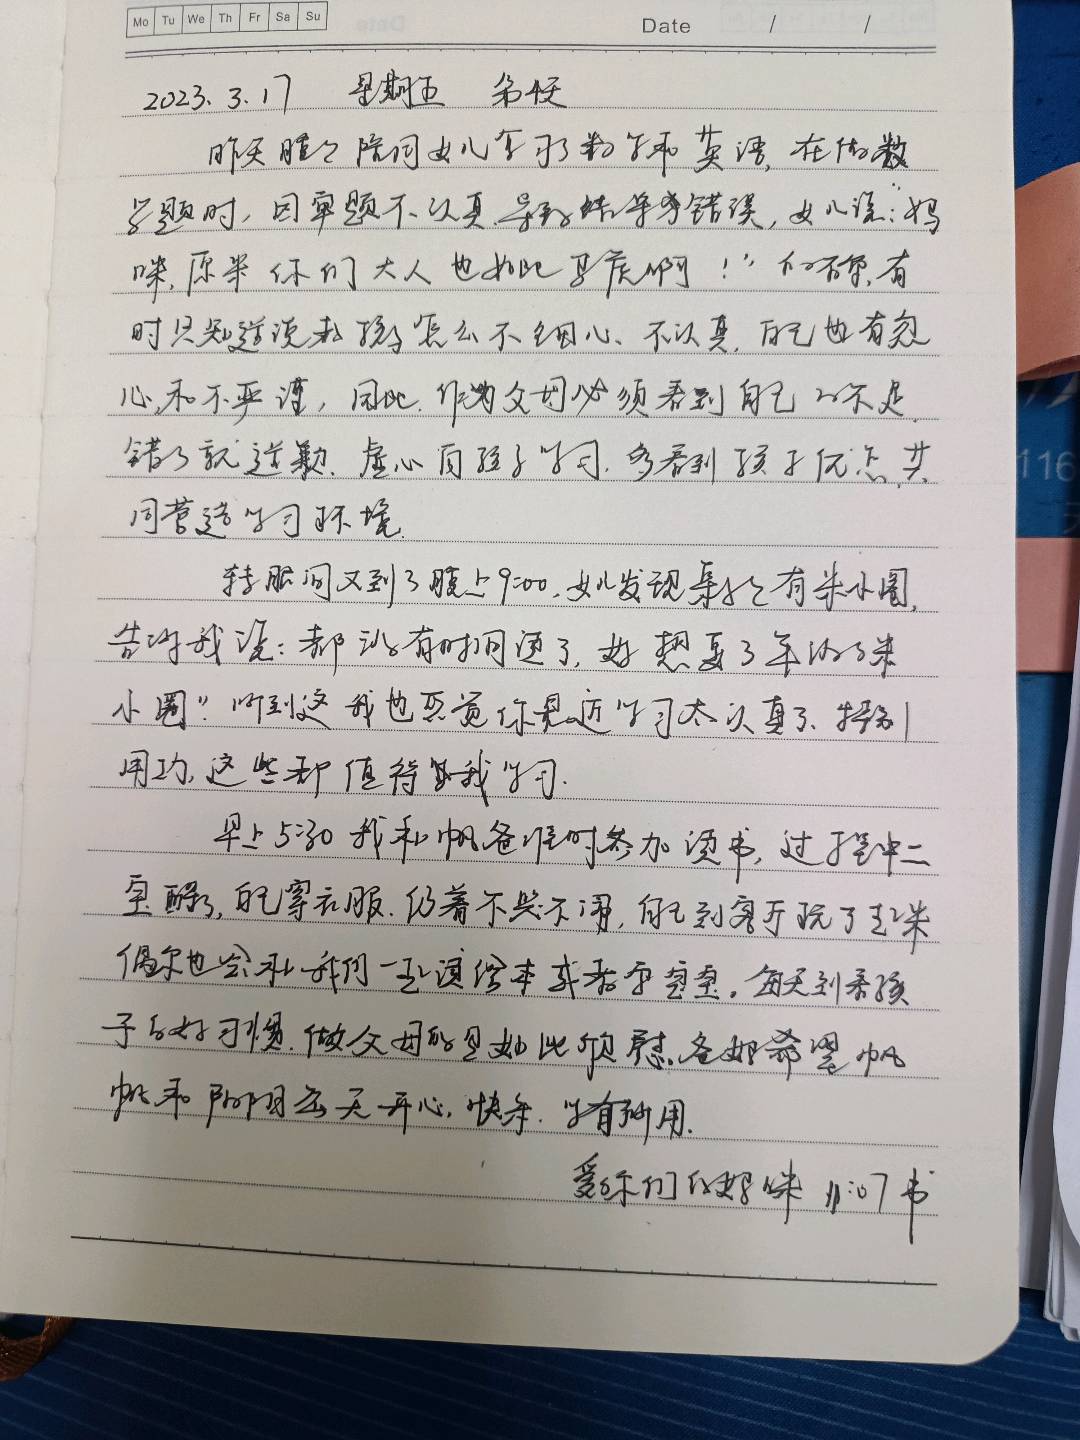 Mo Tu We Th Fr Sa Su
Date / /
2023.3.17 星期五
昨天晚上陪同女儿学习了数学和英语,在做数
学题时,因审题不认真导致结果错误,女儿说:“妈
咪,原来你们大人也如此马虎啊!”的确,有
时只知道说孩子怎么不细心、不认真,自己也有
心和不严谨,因此,作为父母必须看到自己的不足,
错了就道歉,虚心向孩子学习,多看到孩子优点,共
同营造学习环境.
转眼间又到了晚上9:00,女儿发现桌子上有米小圈,
告诉我说:都没有时间逗了,好想
小圈”.听到这我也觉你最近学习太认真了、特别
用功,这些都值得我学习.
早上5:30我和帆爸准时参加读书,过程中二
宝醒了,自己穿衣服,仍着不哭不闹,自己到客厅玩了起来
偶尔也会和我们一起读绘本或.每天到孩
子的好习惯,做父母的是如此欣慰.爸妈希望帆
帆和阳阳天天开心,快乐,学有所用.
爱你们的妈咪 11:07书
116